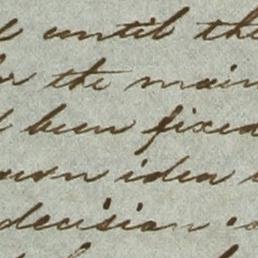 until the
the main
been fixed
own idea
decision